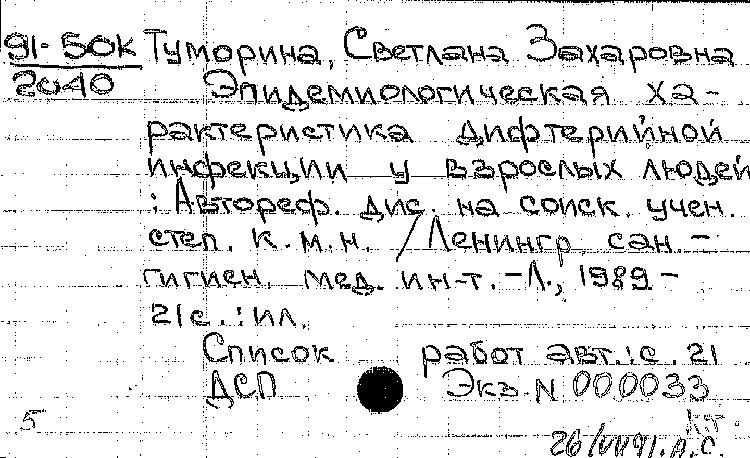 91-50К Туморина, Светлана Захаровна
2040 Эпидемиологическая ха-
рактеристика дифтерийной
инфекции у взрослых людей
: Автореф. дис. на соиск. учен.
степ. к.м.н. / Ленингр. сан.-
гигиен. мед. ин-т. - Л., 1989 -
21с. : ил.
Список работ авт.: с. 21
ДСП Экз. N 000033
5 к.т.